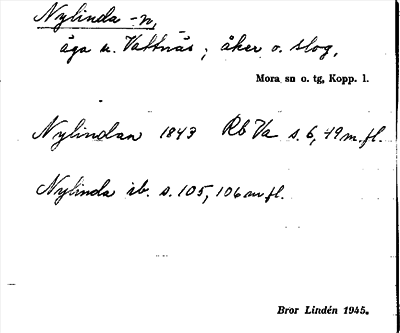 Nylinda -n,
äga u. Vattnäs; åker o. slog.
Mora sn o. tg, Kopp. l.
Nylindan 1843 Rb Va s. 6, 49 m.fl.
Nylinda ib. s. 105, 106 m fl.
Bror Lindén 1945.